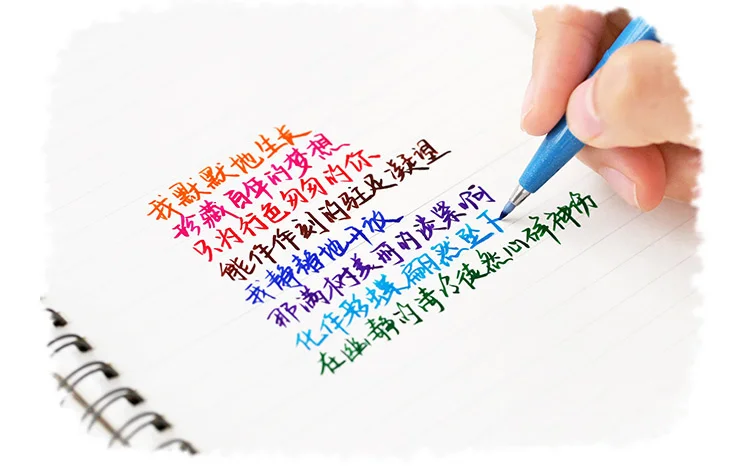 我默默地生长
珍藏自年的梦想
只为行色匆匆的你
能作作刻的驻足凝望
我静静地开放
那满树美丽的淡紫啊
化作彩蝶翩然坠下
在幽静的清冷徒然心碎神伤